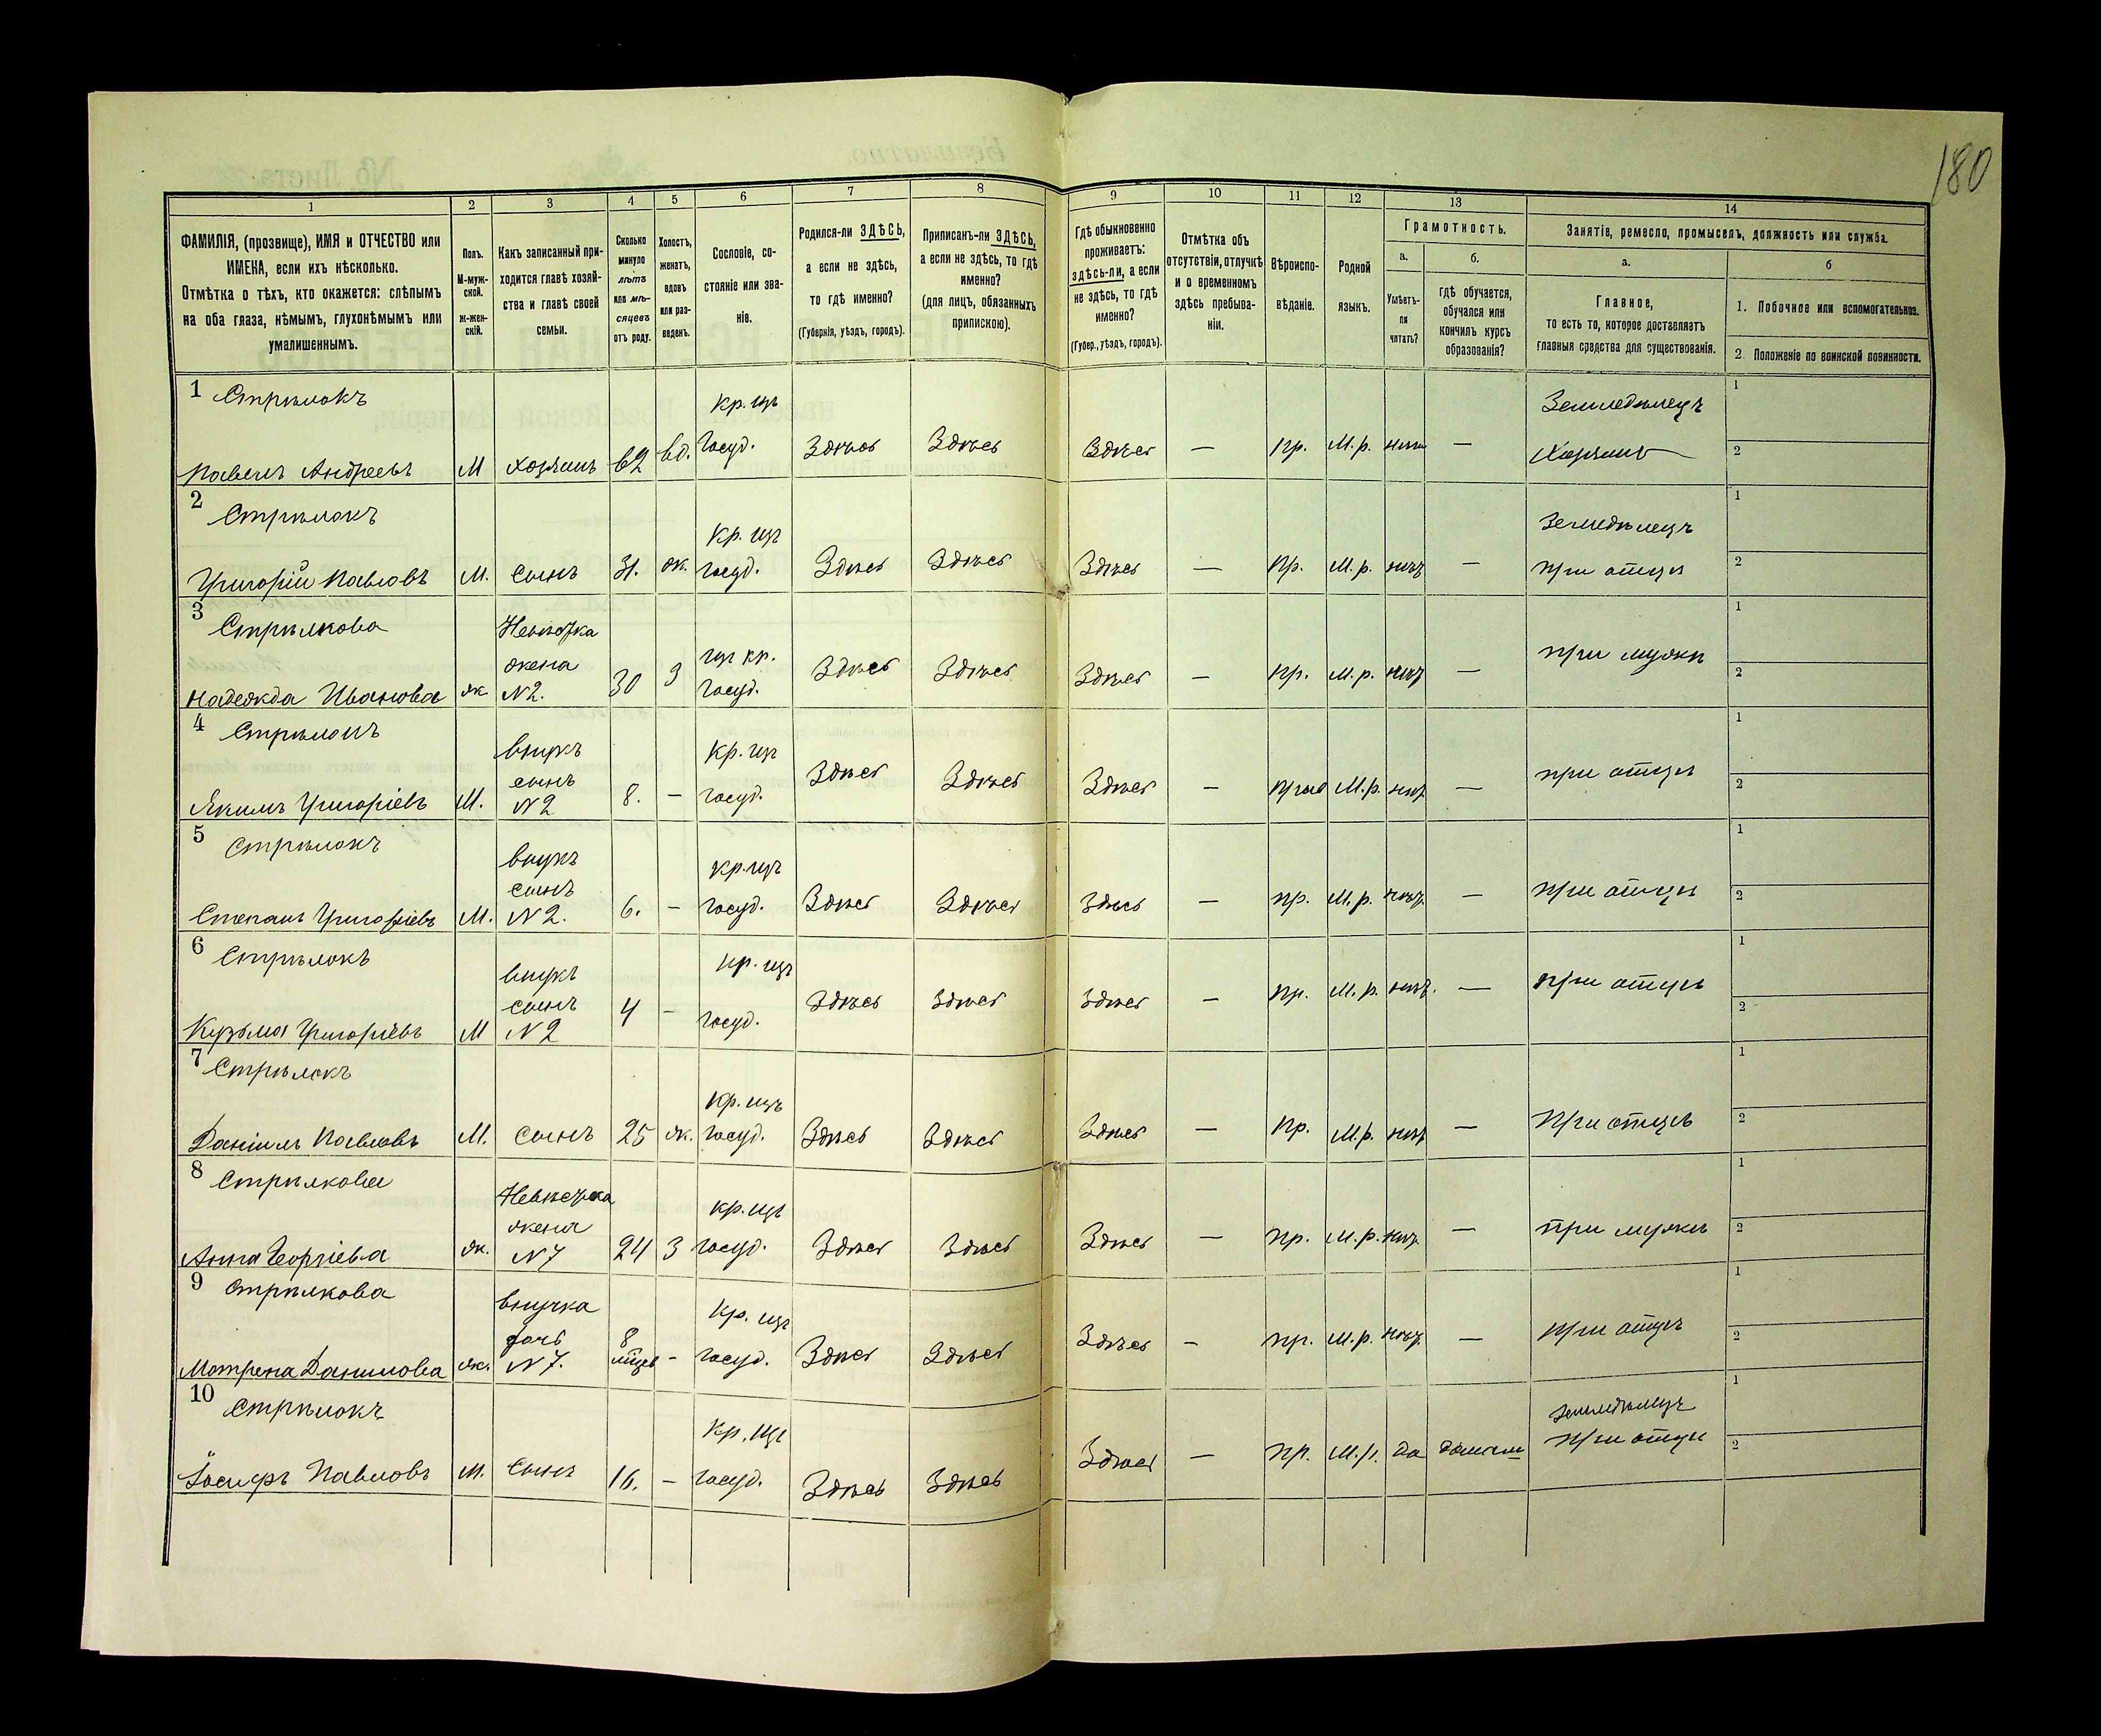 180
1 2 3 4 5 6 7 8 9 10 11 12 13 14
ФАМИЛІЯ, (прозвище), ИМЯ и ОТЧЕСТВО или
ИМЕНА, если ихъ нѣсколько.
Отмѣтка о тѣхъ, кто окажется: слѣпымъ
на оба глаза, нѣмымъ, глухонѣмымъ или
умалишеннымъ.
Полъ.
М-муж-
ской.
ж-жен-
скій.
Какъ записанный при-
ходится главѣ хозяй-
ства и главѣ своей
семьи.
Сколько
минуло
лѣтъ
или мѣ-
сяцевъ
отъ роду.
Холостъ,
женатъ,
вдовъ
или раз-
веденъ.
Сословіе, со-
стояніе или зва-
ніе.
Родился-ли ЗДѢСЬ,
а если не здѣсь,
то гдѣ именно?
(Губернія, уѣздъ, городъ).
Приписанъ-ли ЗДѢСЬ,
а если не здѣсь, то гдѣ
именно?
(для лицъ, обязанныхъ
припискою).
Гдѣ обыкновенно
проживаетъ:
здѣсь-ли, а если
не здѣсь, то гдѣ
именно?
(Губер., уѣздъ, городъ).
Отмѣтка объ
отсутствіи, отлучкѣ
и о временномъ
здѣсь пребыва-
ніи.
Вѣроиспо-
вѣданіе.
Родной
языкъ.
Грамотность.
а.
Умѣетъ-
ли
читать?
б.
гдѣ обучается,
обучался или
кончилъ курсъ
образованія?
Занятіе, ремесло, промыселъ, должность или служба.
а.
Главное,
то есть то, которое доставляетъ
главныя средства для существованія.
б
1. Побочное или вспомогательное.
2. Положеніе по воинской повинности.
1 Стрѣлокъ Кр. изъ Земледѣлецъ 1
Павелъ Андреевъ М хозяинъ 62 вд. госуд. Здѣсь Здѣсь Здѣсь — Пр. М.р. нѣтъ — Хозяинъ 2
2 Стрѣлокъ Кр. изъ Земледѣлецъ 1
Григорій Павловъ М. сынъ 31. ж. госуд. Здѣсь Здѣсь Здѣсь — Пр. М.р. нѣтъ — при отцѣ 2
3 Стрѣлкова Невѣстка 1
жена изъ кр. при мужѣ
Надежда Иванова ж. N2. 30 З госуд. Здѣсь Здѣсь Здѣсь — Пр. М.р. нѣтъ — 2
4 Стрѣлокъ внукъ Кр. изъ 1
сынъ
Якимъ Григоріевъ М. N2 8. — госуд. Здѣсь Здѣсь Здѣсь — М.р. нѣтъ — при отцѣ 2
5 Стрѣлокъ внукъ кр. изъ 1
сынъ
Степанъ Григоріевъ М. N2. 6. — госуд. Здѣсь Здѣсь Здѣсь — пр. М.р. нѣтъ. — при отцѣ 2
6 Стрѣлокъ внукъ кр. изъ 1
сынъ
Кузьма Григоріевъ М N2 4 — госуд. Здѣсь Здѣсь Здѣсь — Пр. М.р. нѣтъ. — при отцѣ 2
7 Стрѣлокъ Кр. изъ 1
Даніилъ Павловъ М. сынъ 25 ж. госуд. Здѣсь Здѣсь Здѣсь — Пр. М.р. нѣтъ — При отцѣ 2
8 Стрѣлкова Невѣстка кр. изъ 1
жена
Анна Георгіева ж. N7 24 З госуд. Здѣсь Здѣсь Здѣсь — Пр. М.р. нѣтъ — при мужѣ 2
9 Стрѣлкова внучка Кр. изъ 1
дочь 8
Матрена Данилова ж. N7. мѣцев — госуд. Здѣсь Здѣсь Здѣсь — пр. М.р. нѣтъ — При отцѣ 2
10 Стрѣлокъ Кр. изъ земледѣлецъ 1
Іосифъ Павловъ М. сынъ 16. — госуд. Здѣсь Здѣсь Здѣсь — пр. М.р. да При отцѣ 2